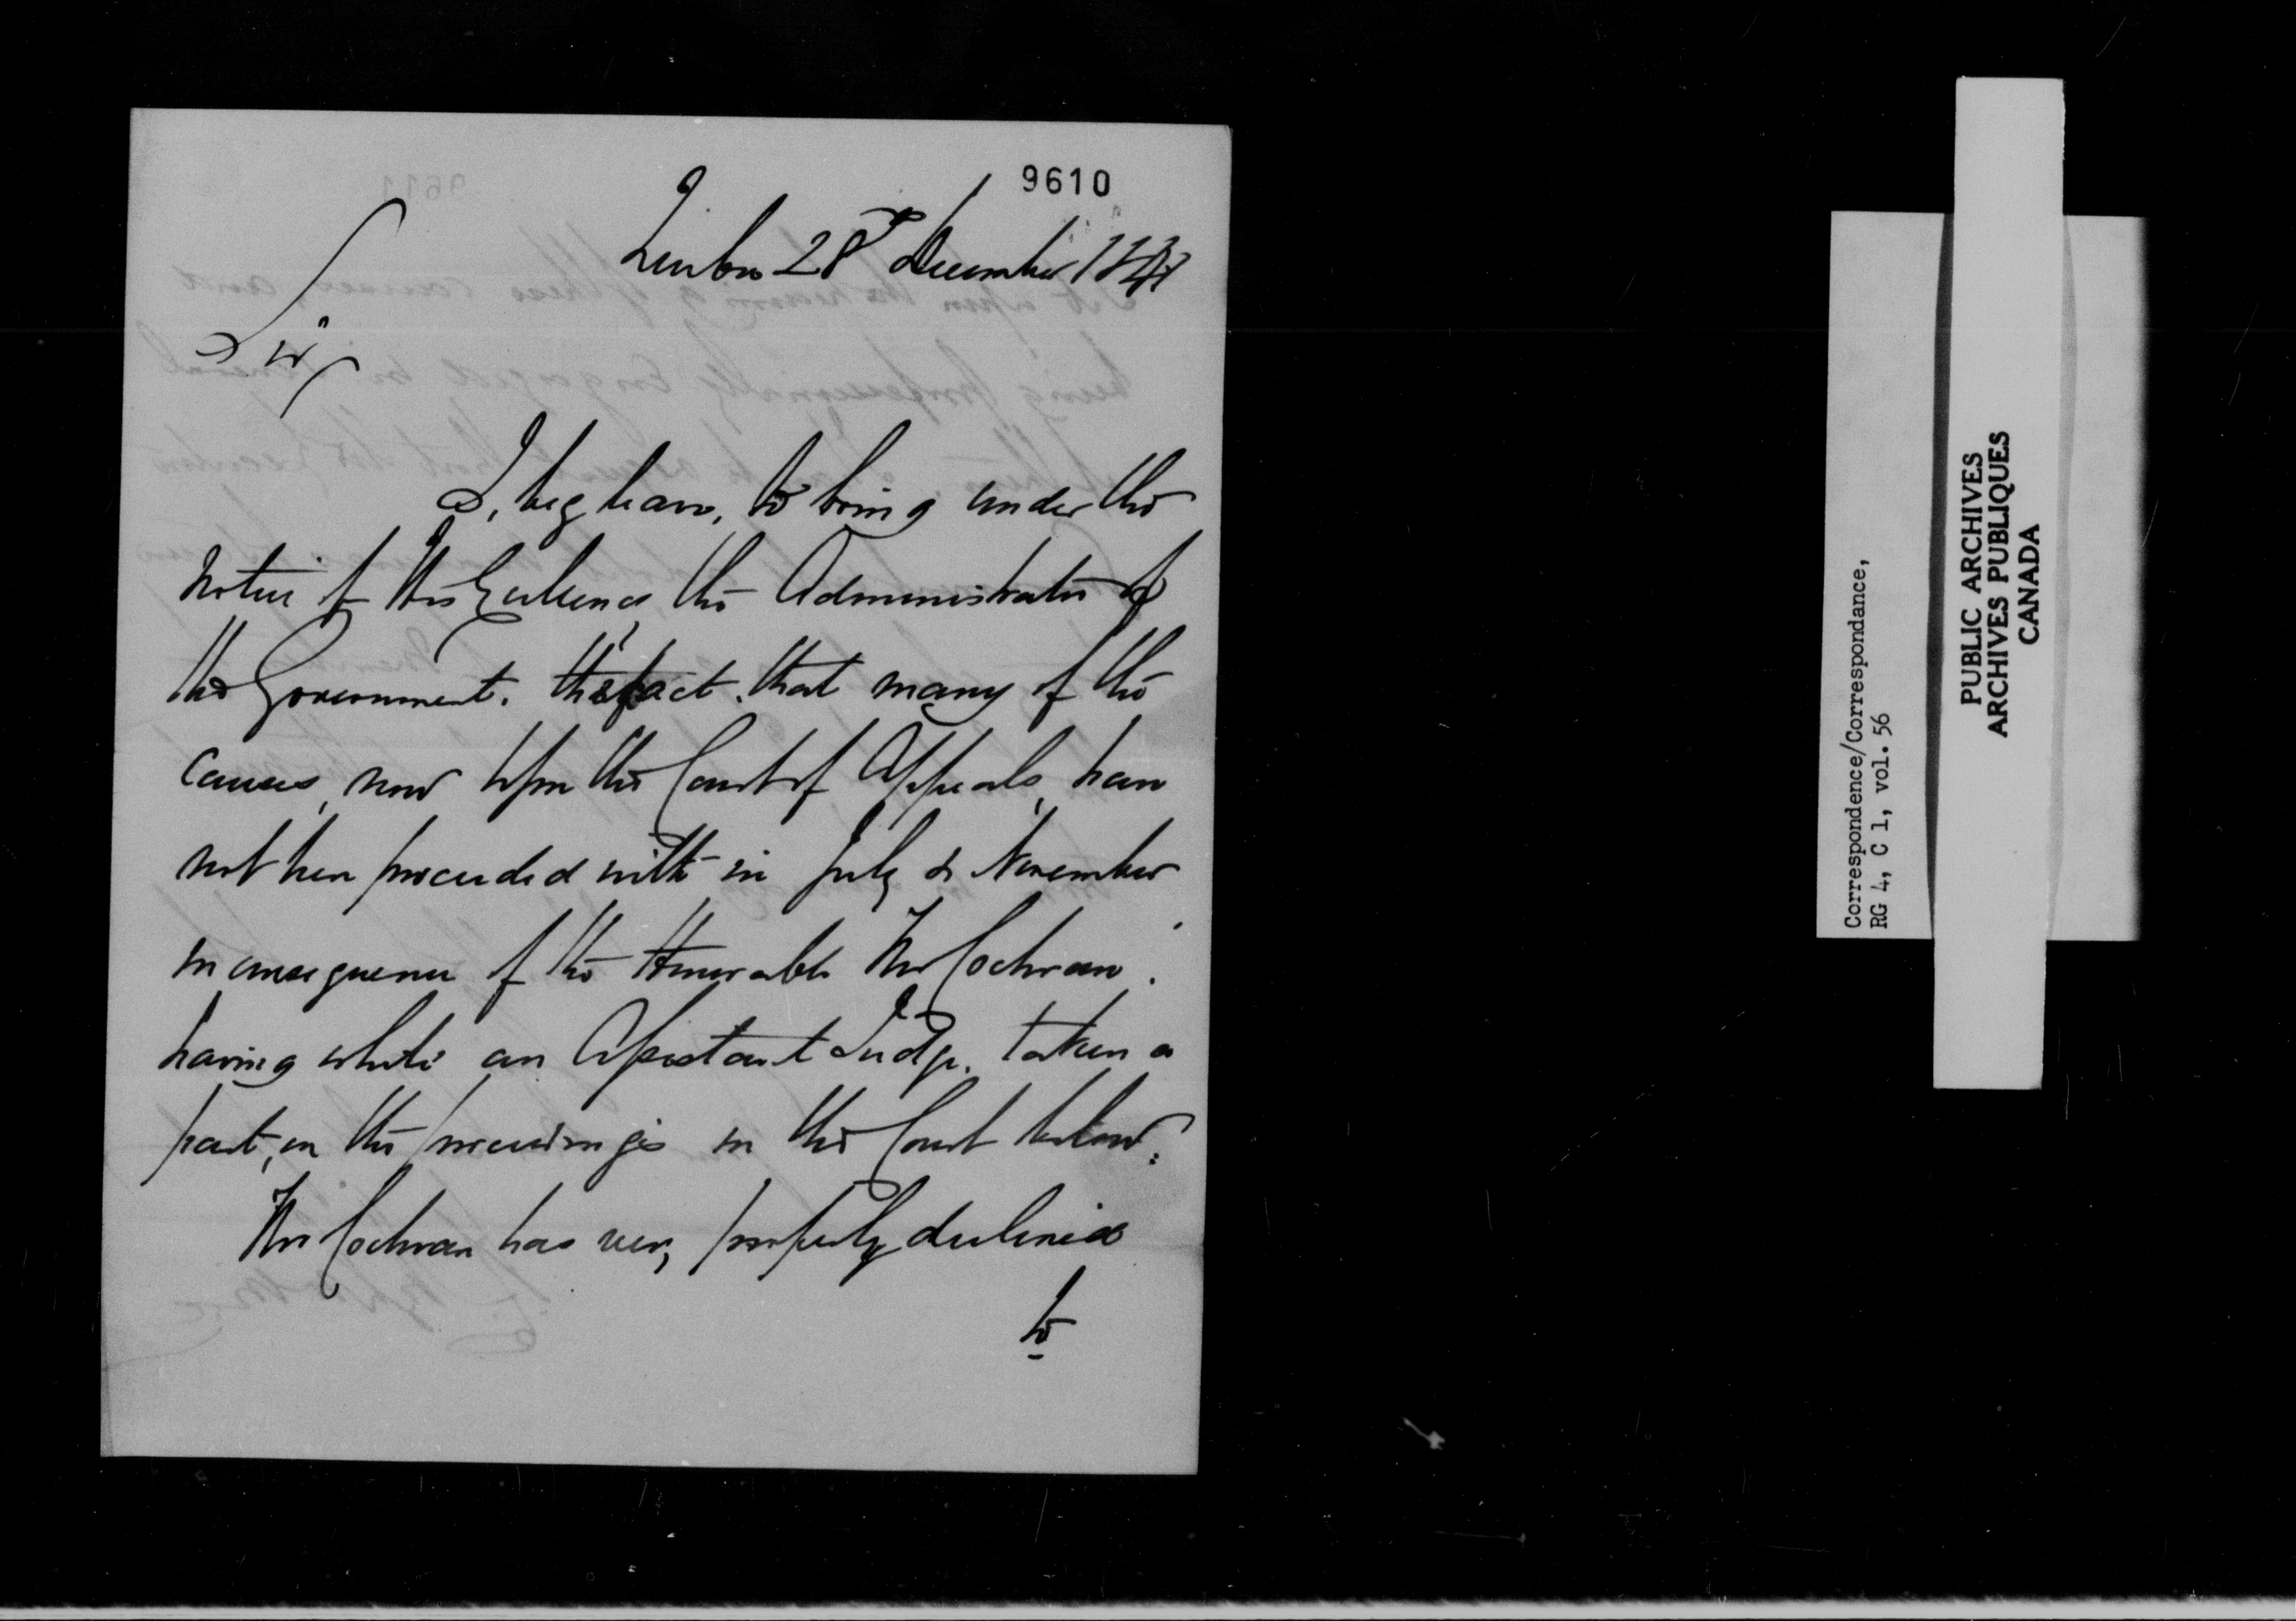 9610
Quebec 28th December 1841
Sir,
I, beg leave, to bring under the
notice of His Excellency the Administrator of
the Government. the fact. that many of the
causes, now before the Court of Appeals, have
not been proceeded with in July & November
in consequence of the Honorable Mr Cochran.
having while an Assistant Judge. taken a
part, in the proceedings in the Court below:
Mr Cochran has very properly declined
to
Correspondence/Correspondance,
RG 4, C 1, vol. 56
PUBLIC ARCHIVES
ARCHIVES PUBLIQUES
CANADA